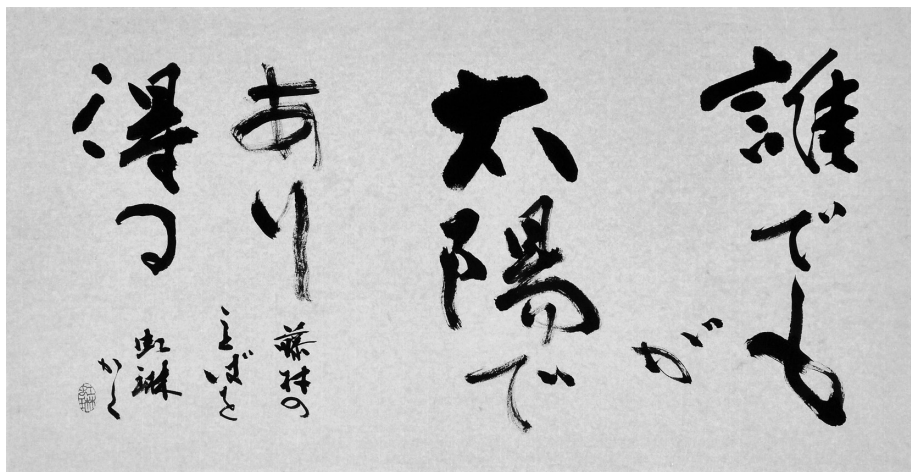 誰でも
が
太陽で
あり
得る
藤村の
ことばを
虹琳
かく